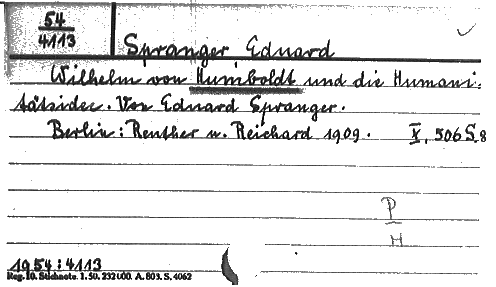 54
4113
Spranger Eduard
Wilhelm von Humboldt und die Humani-
tätsidee. Von Eduard Spranger.
Berlin: Reuther u. Reichard 1909. X, 506 S. 8
P
H
1954:4113
Reg. 10. Stichnote. 1. 50. 232000. A. 803. S. 4062